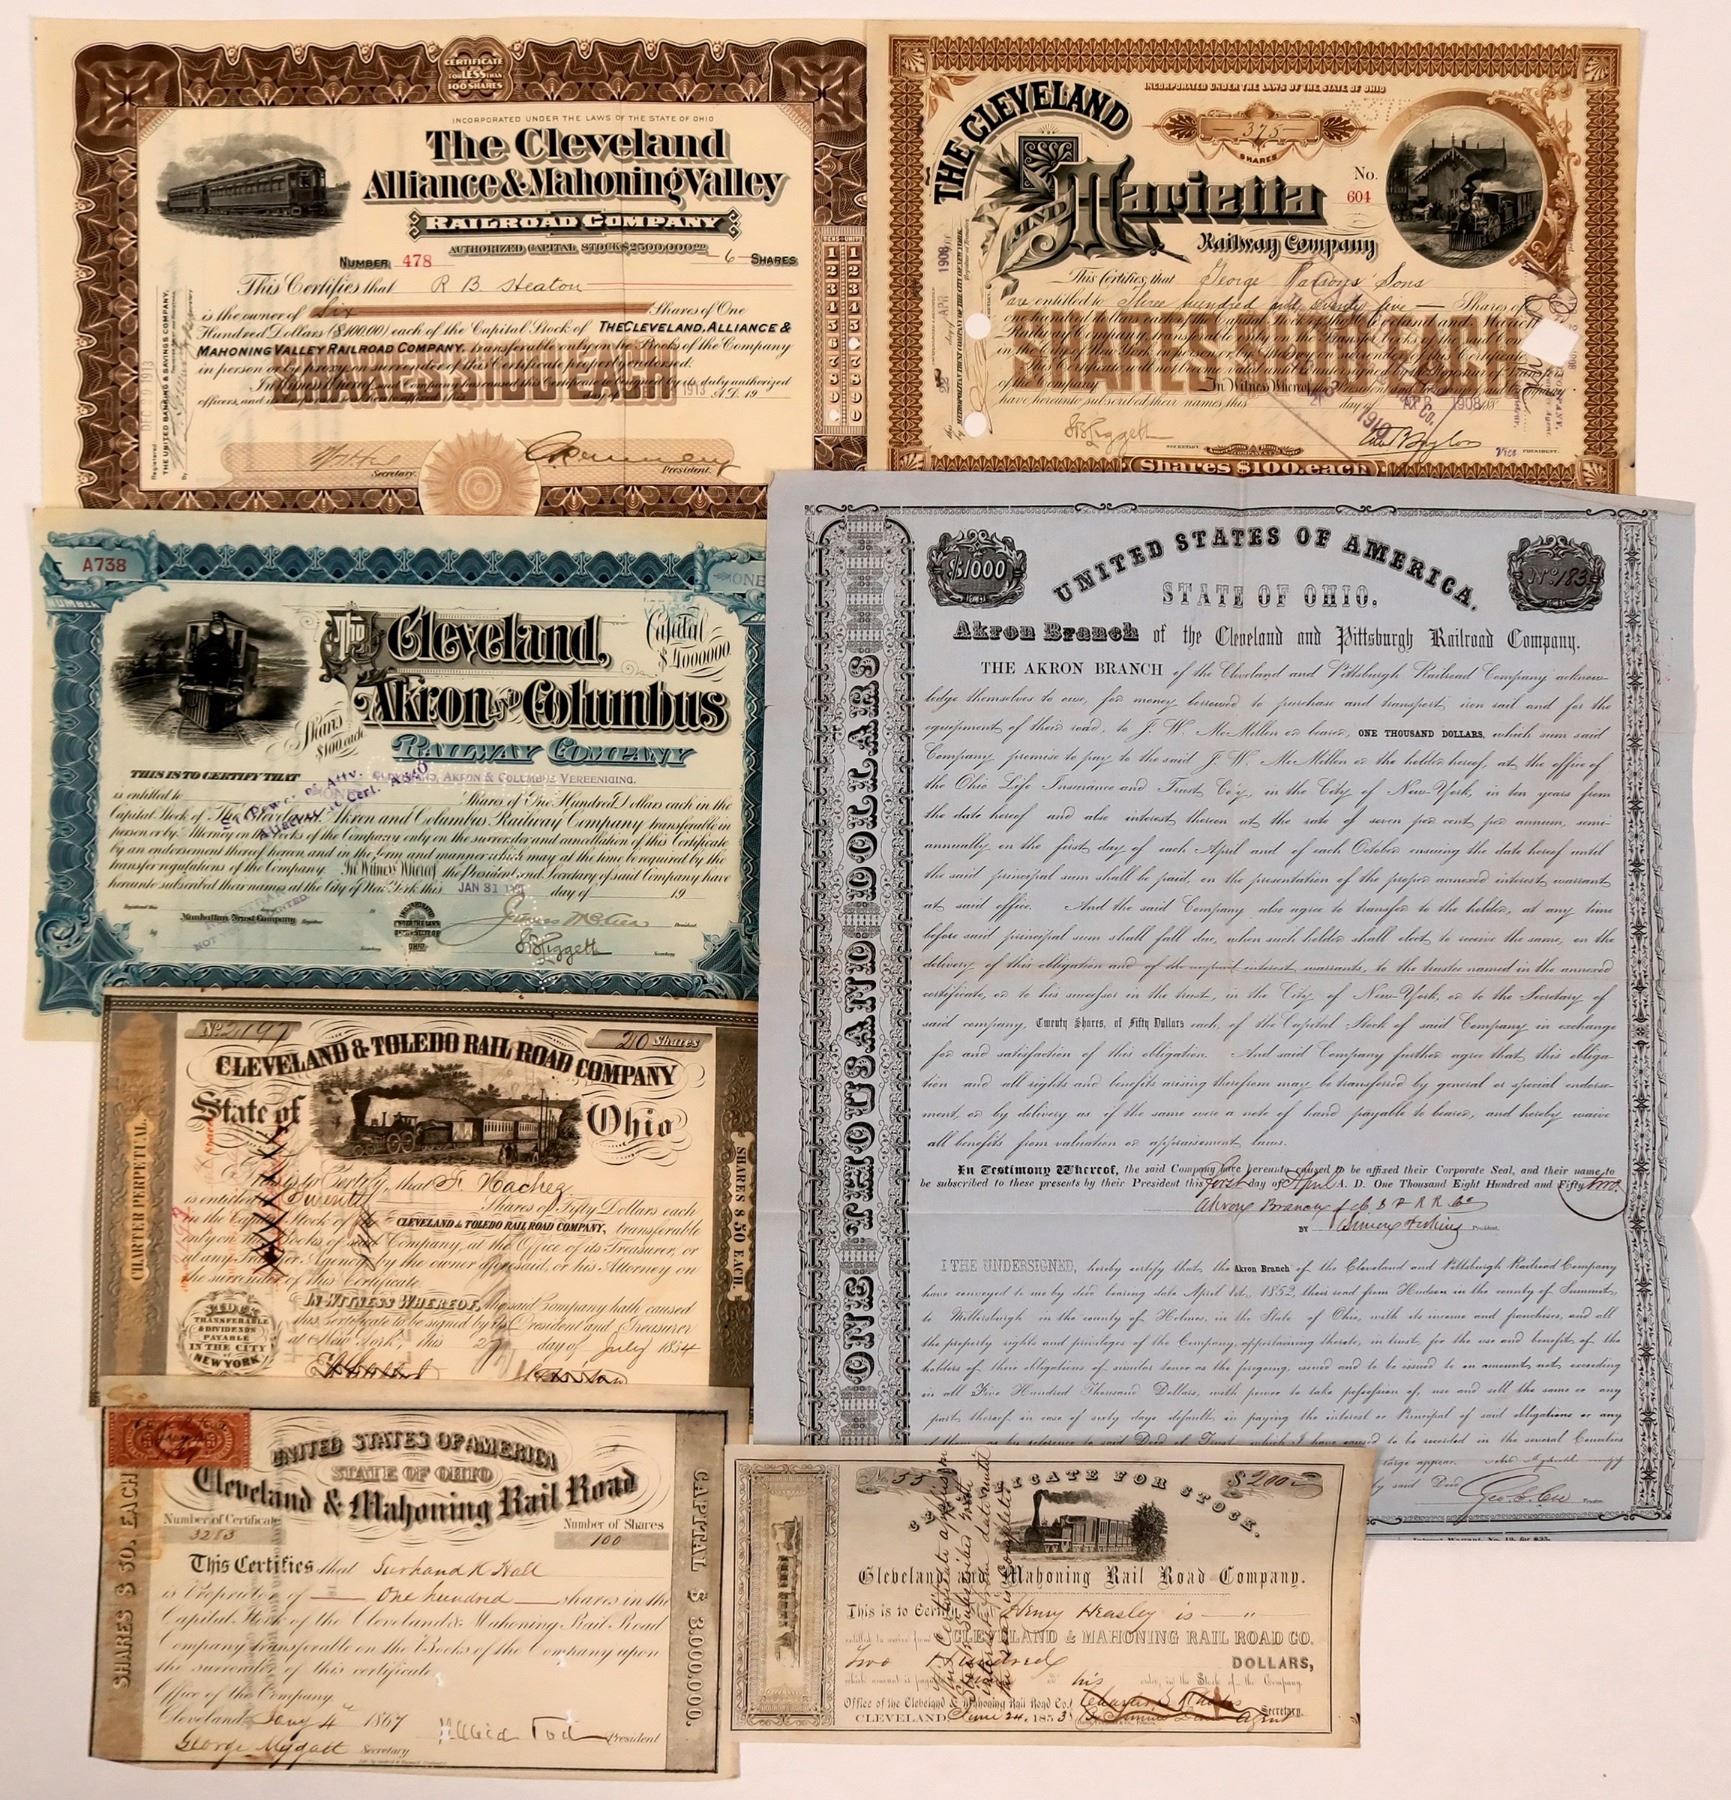 CERTIFICATE
FOR LESS THAN
100 SHARES
INCORPORATED UNDER THE LAWS OF THE STATE OF OHIO
The Cleveland
Alliance & Mahoning Valley
RAILROAD COMPANY
AUTHORIZED CAPITAL STOCK $2500,000.00
NUMBER 478
6 SHARES
This Certifies that R B Heaton
is the owner of Six Shares of One
Hundred Dollars ($100.00) each of the Capital Stock of THE CLEVELAND, ALLIANCE &
MAHONING VALLEY RAILROAD COMPANY, transferable only on the Books of the Company
in person or by proxy on surrender of this Certificate properly endorsed.
In Witness Whereof, said Company has caused this Certificate to be signed by its duly authorized
officers, and
1913 A.D. 19
Secretary.
President.
THE UNITED BANKING & SAVINGS COMPANY,
Registered
TENS UNITS
THE CLEVELAND
AND Marietta
Railway Company
INCORPORATED UNDER THE LAWS OF THE STATE OF OHIO
375
SHARES
No.
604
This Certifies that George Parsons' Sons
are entitled to Three hundred and seventy five Shares of
one hundred dollars each of the Capital Stock of the Cleveland and Marietta
Railway Company, transferable only on the Transfer books of the said Company
in the City of New York in person or by Attorney on surrender of this Certificate
This Certificate will not become valid until
of the Company
In Witness Whereof the President and Secretary
have hereunto subscribed their names this 21 day of APR 1908
SB Liggett
SECRETARY
VICE PRESIDENT.
Shares $100. each
A738
NUMBER
ONE
The Cleveland,
Akron and Columbus
RAILWAY COMPANY
Capital
$4000000.
Shares
$100 each
THIS IS TO CERTIFY THAT CLEVELAND, AKRON & COLUMBUS VEREENIGING.
See Power of Atty.
Attached to Cert. A540
is entitled to ONE Shares of One Hundred Dollars each in the
Capital Stock of The Cleveland, Akron and Columbus Railway Company transferable in
person or by Attorney on the Books of the Company only on the surrender and cancellation of this Certificate
by an endorsement thereof hereon and in the form and manner which may at the time be required by the
transfer regulations of the Company. In Witness Whereof the President and Secretary of said Company have
hereunto subscribed their names at the City of New York this JAN 31 day of 19
Manhattan Trust Company Registrar
President
SB Liggett
Secretary
UNITED STATES OF AMERICA,
STATE OF OHIO.
$1000
No. 183
Akron Branch of the Cleveland and Pittsburgh Railroad Company.
THE AKRON BRANCH of the Cleveland and Pittsburgh Railroad Company acknow-
ledge themselves to owe, for money borrowed to purchase and transport iron rail and for the
equipment of their road, to J. W. McMillen or bearer, ONE THOUSAND DOLLARS, which sum said
Company promise to pay to the said J. W. McMillen or the holder hereof, at the office of
the Ohio Life Insurance and Trust Co'y, in the City of New York, in ten years from
the date hereof and also interest thereon at the rate of seven per cent per annum, semi-
annually on the first day of each April and of each October ensuing the date hereof until
the said principal sum shall be paid, on the presentation of the proper annexed interest warrant
at said office. And the said Company also agree to transfer to the holder, at any time
before said principal sum shall fall due, when such holder shall elect to receive the same, on the
delivery of this obligation and of the unpaid interest warrants, to the trustee named in the annexed
certificate, or to his successor in the trust, in the City of New-York, or to the Secretary of
said company, Twenty Shares, of Fifty Dollars each, of the Capital Stock of said Company in exchange
for and satisfaction of this obligation. And said Company further agree that this obliga-
tion and all rights and benefits arising therefrom may be transferred by general or special endorse-
ment, or by delivery as if the same were a note of hand payable to bearer, and hereby waive
all benefits from valuation or appraisement laws.
In Testimony Whereof, the said Company have hereunto caused to be affixed their Corporate Seal, and their name to
be subscribed to these presents by their President this first day of April A. D. One Thousand Eight Hundred and Fifty two.
Akron Branch of C & P R R Co
BY Simon Perkins President.
I THE UNDERSIGNED, hereby certify that, the Akron Branch of the Cleveland and Pittsburgh Railroad Company
have conveyed to me by deed bearing date April 1st, 1852, their road from Hudson in the county of Summit,
to Millersburgh in the county of Holmes, in the State of Ohio, with its income and franchises, and all
the property rights and privileges of the Company, appertaining thereto, in trust, for the use and benefit of the
holders of their obligations of similar tenor as the foregoing, issued and to be issued to an amount not exceeding
in all Five Hundred Thousand Dollars, with power to take possession of, use and sell the same or any
part thereof, in case of sixty days default, in paying the interest or Principal of said obligations or any
of them
by said Deed
ONE THOUSAND DOLLARS
No. 2197
20 Shares
CLEVELAND & TOLEDO RAIL ROAD COMPANY
State of Ohio
This is to Certify, that F. Hachez
is entitled to Twenty Shares of Fifty Dollars each
in the Capital Stock of the CLEVELAND & TOLEDO RAIL ROAD COMPANY, transferable
only on the Books of said Company, at the Office of its Treasurer, or
at any Transfer Agency, by the owner aforesaid, or his Attorney on
the surrender of this Certificate.
IN WITNESS WHEREOF, the said Company hath caused
this Certificate to be signed by its President and Treasurer
at New York, this 27 day of July 1854
CHARTER PERPETUAL.
SHARES $50 EACH.
STOCK
TRANSFERABLE
& DIVIDENDS
PAYABLE
IN THE CITY
OF
NEW YORK
UNITED STATES OF AMERICA
STATE OF OHIO
Cleveland & Mahoning Rail Road
Number of Certificate
3283
Number of Shares
100
This Certifies that
is Proprietor of One hundred shares in the
Capital Stock of the Cleveland & Mahoning Rail Road
Company transferable on the Books of the Company upon
the surrender of this certificate
Office of the Company
Cleveland Jany 4th 1867
George Mygatt Secretary
David Tod President
SHARES $50. EACH
CAPITAL $3,000,000.
No. 55
$200
CERTIFICATE FOR STOCK.
Cleveland and Mahoning Rail Road Company.
This is to Certify that Henry Heasley is
entitled to receive from CLEVELAND & MAHONING RAIL ROAD CO.
Two Hundred DOLLARS,
his order, in the Stock of the Company
Office of the Cleveland & Mahoning Rail Road Co.
CLEVELAND, June 24, 1853
Secretary.
Agent